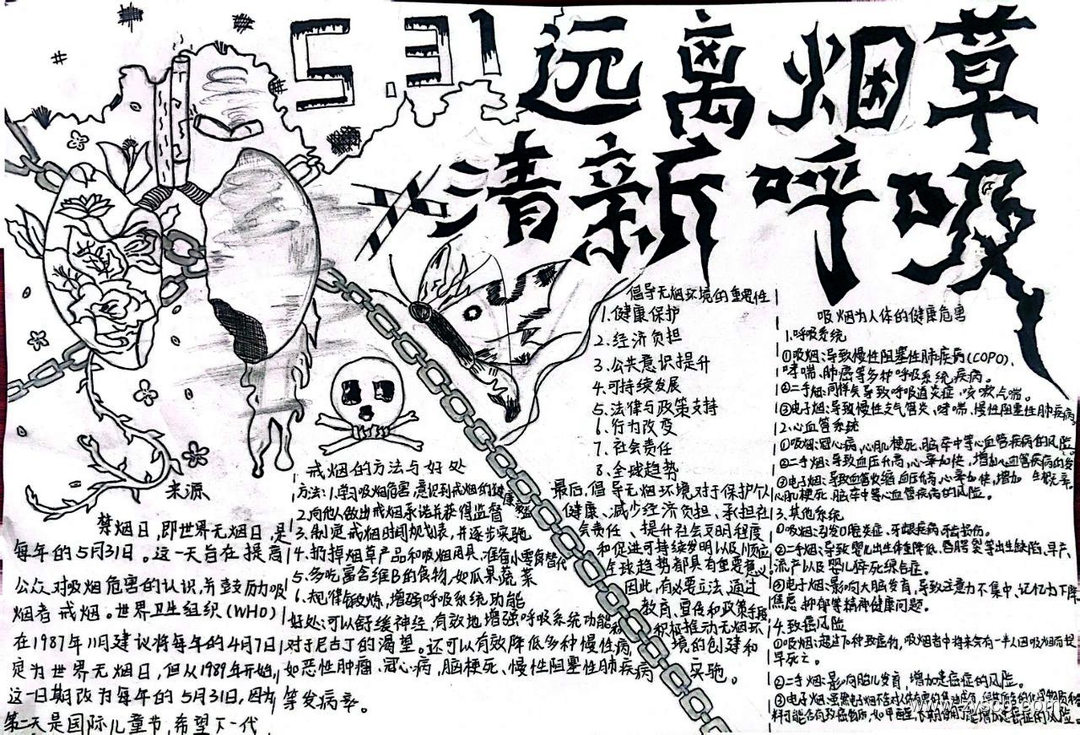 5.31
远离烟草
#清新呼吸
来源
禁烟日,即世界无烟日,是
每年的5月31日。这一天旨在提高
公众对吸烟危害的认识,并鼓励吸
烟者戒烟。世界卫生组织(WHO)
在1987年11月建议将每年的4月7日
定为世界无烟日,但从1989年开始,
这一日期改为每年的5月31日,因为
第二天是国际儿童节,希望下一代
戒烟的方法与好处
方法:1.学习吸烟危害,意识到戒烟的
2.向他人做出戒烟承诺并获得监督
3.制定戒烟时间规划表,并逐步实施
4.扔掉烟草产品和吸烟用具,准备小零食替代
5.多吃富含维B的食物,如瓜果蔬菜
6.规律锻炼,增强呼吸系统功能
好处:可以舒缓神经,有效地增强呼吸系统功能
对于尼古丁的渴望。还可以有效降低多种慢性病
如恶性肿瘤、冠心病,脑梗死、慢性阻塞性肺疾病
等发病率。
倡导无烟环境的重要性
1.健康保护
2.经济负担
3.公共意识提升
4.可持续发展
5.法律与政策支持
6.行为改变
7.社会责任
8.全球趋势
最后,倡导无烟环境对于保护个人
健康、减少经济负担,承担社
会责任、提升社会文明程度
和促进可持续发明以及顺应
全球趋势都具有重要意义
因此,有必要立法,通过
教育,宣传和政策手段
积极推动无烟环
境的创建和
实施。
吸烟为人体的健康危害
1.呼吸系统
①吸烟:导致慢性阻塞性肺疾病(COPO)、
哮喘、肺癌等多种呼吸系统疾病。
②二手烟:同样会导致呼吸道炎症,咳嗽气喘。
③电子烟:导致慢性支气管炎,哮喘,慢性阻塞性肺疾病
2.心血管系统
①吸烟:冠心病,心肌梗死,脑卒中等心血管疾病的风险。
②二手烟:导致血压升高,心率加快,增加心血管疾病的
③电子烟:导致血管收缩,血压升高,心率加快,增加
心肌梗死,脑卒中等心血管疾病的风险。
3.其他系统
①吸烟:引发口腔炎症,牙龈疾病
②二手烟:导致婴儿出生体重降低、出生缺陷、早产、
流产以及婴儿猝死综合症。
③电子烟:影响大脑发育,导致注意力不集中、记忆力下降
焦虑 抑郁等精神健康问题。
4.致癌风险
①吸烟:超过10种致癌物,吸烟者中将来会有一半人因吸烟而
早死亡。
②二手烟:影响胎儿发育,增加患癌症的风险。
③电子烟:
www.zyscb.com